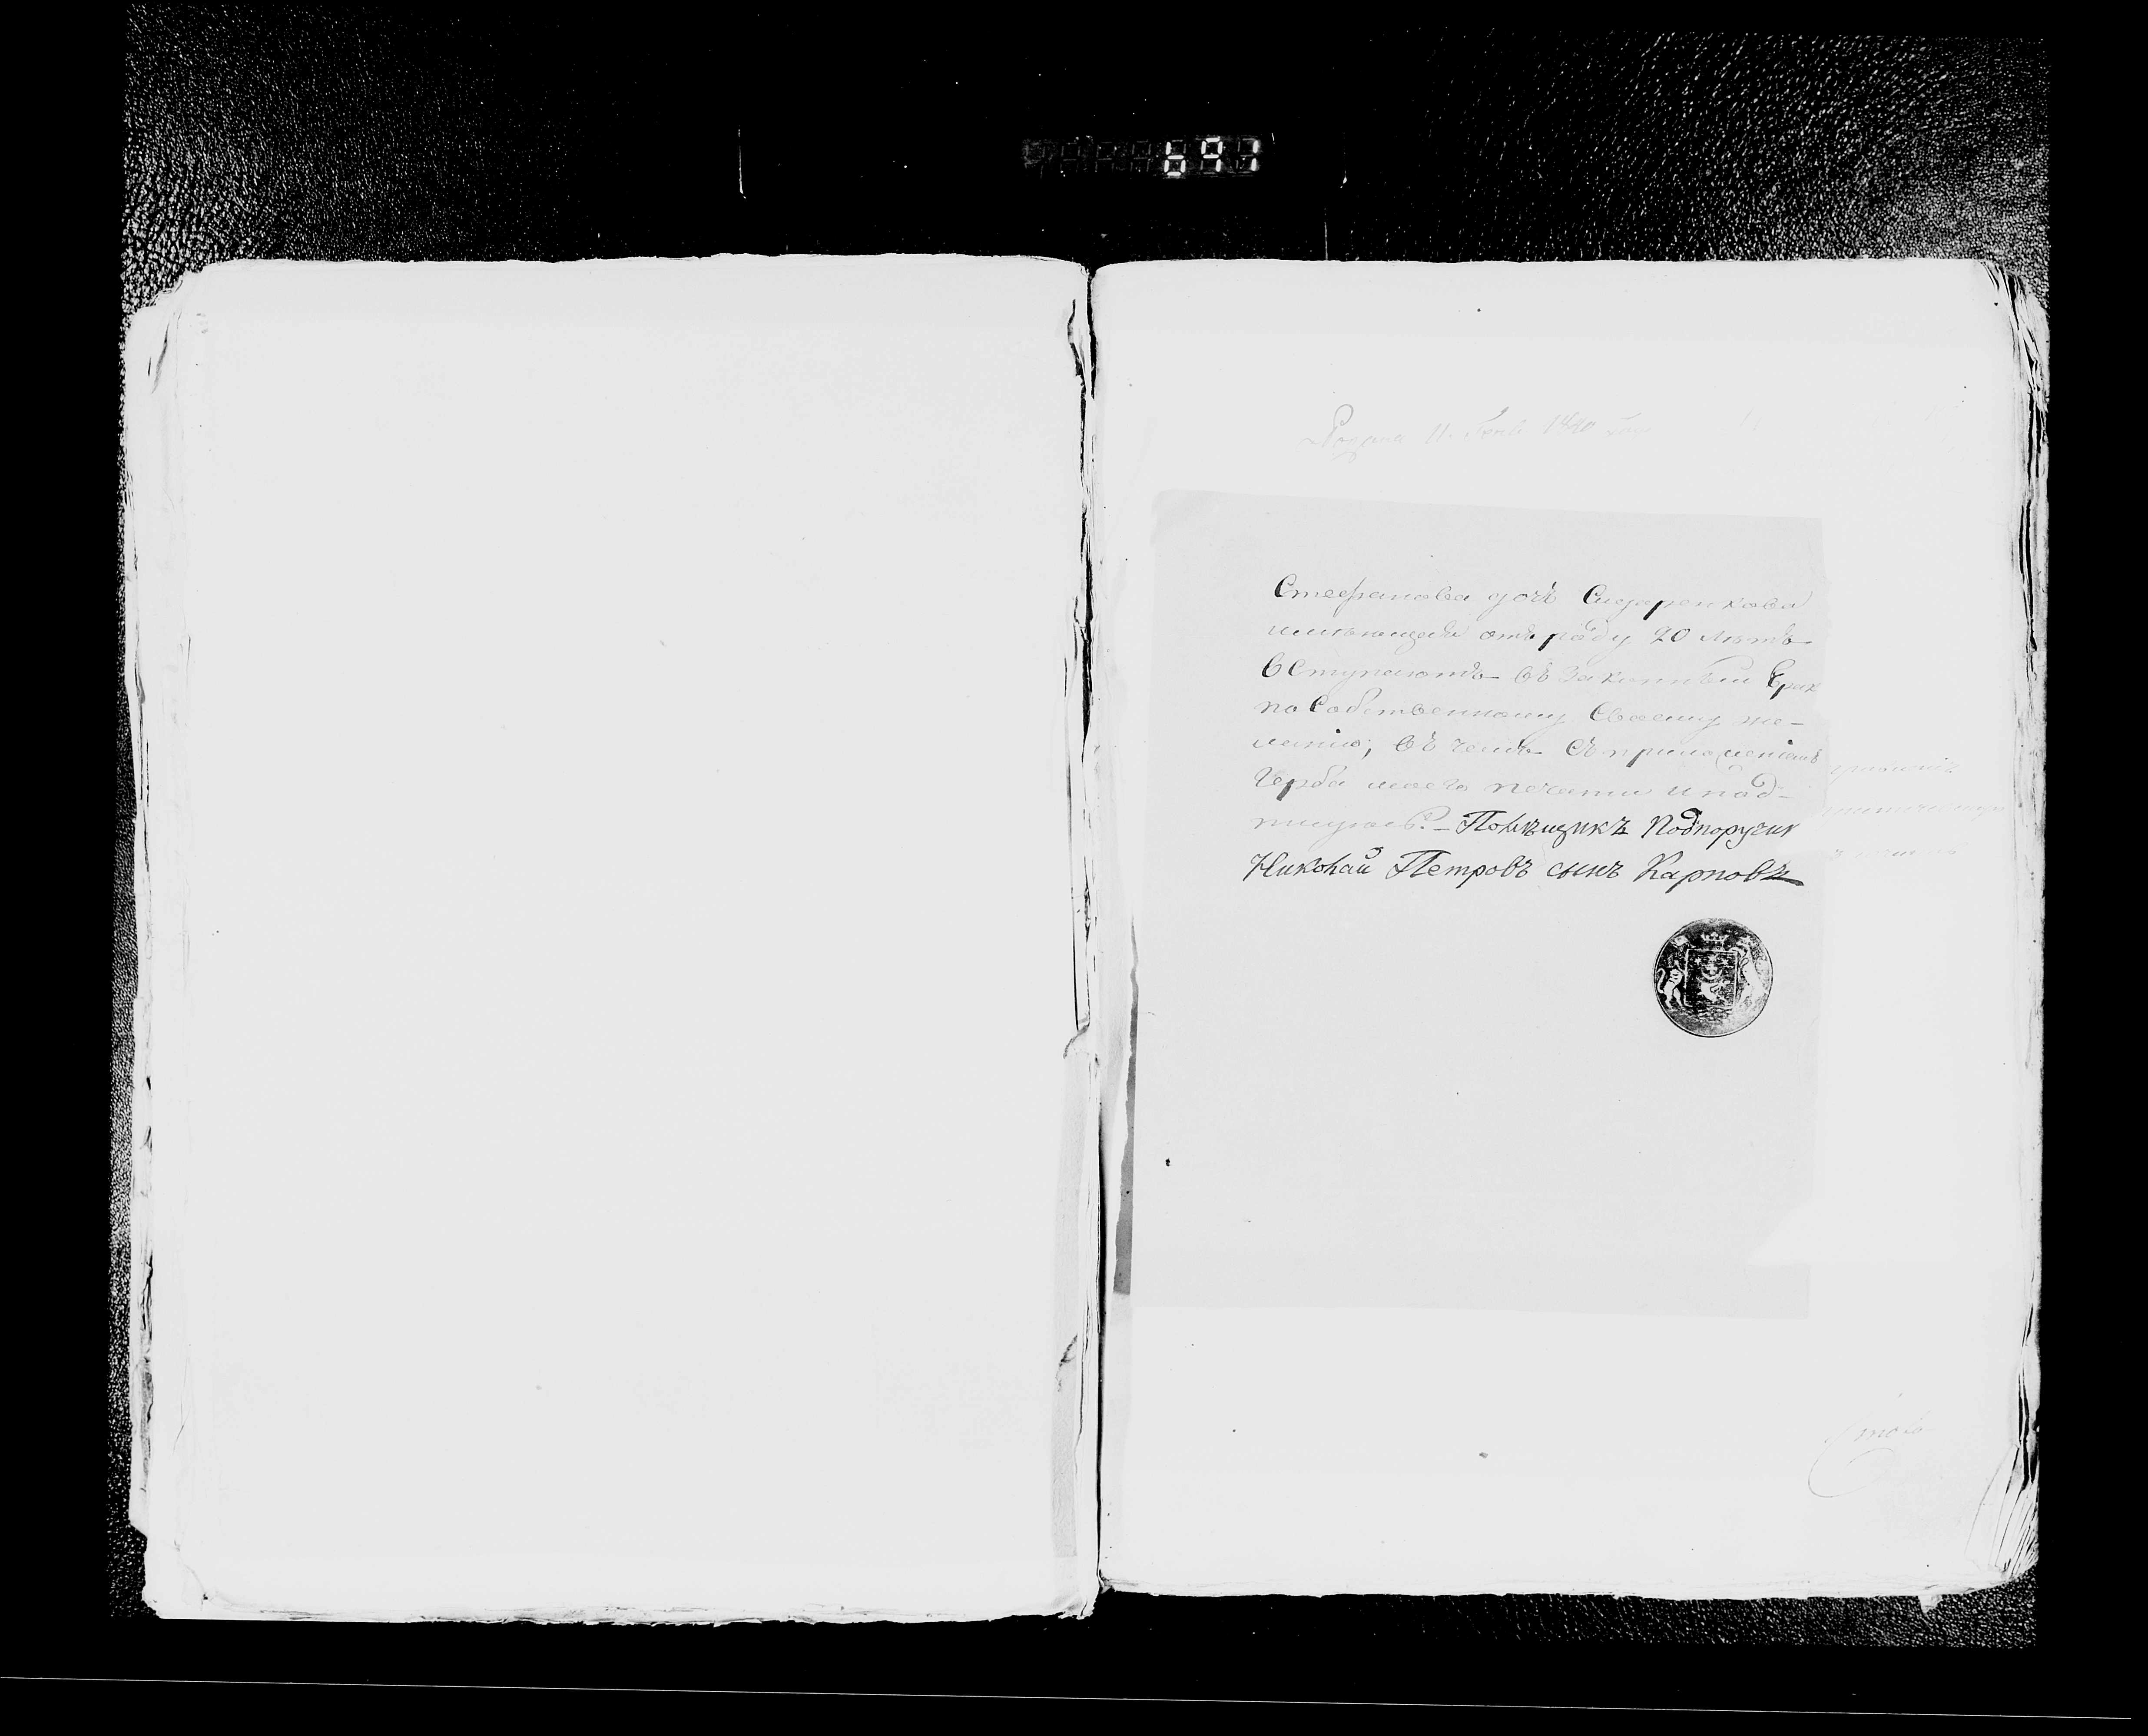 691
11. 1840
Стефанова дочь Сидаренкова
имѣющая отъ роду 20 лѣтъ
вступаютъ въ законный брак
по Собственному Своему же-
ланію; въ чемъ Съ приложеніемъ
герба моего печати и под-
писуюсь. – Помѣщикъ Подпоручик
Николай Петровъ сынъ Карповъ